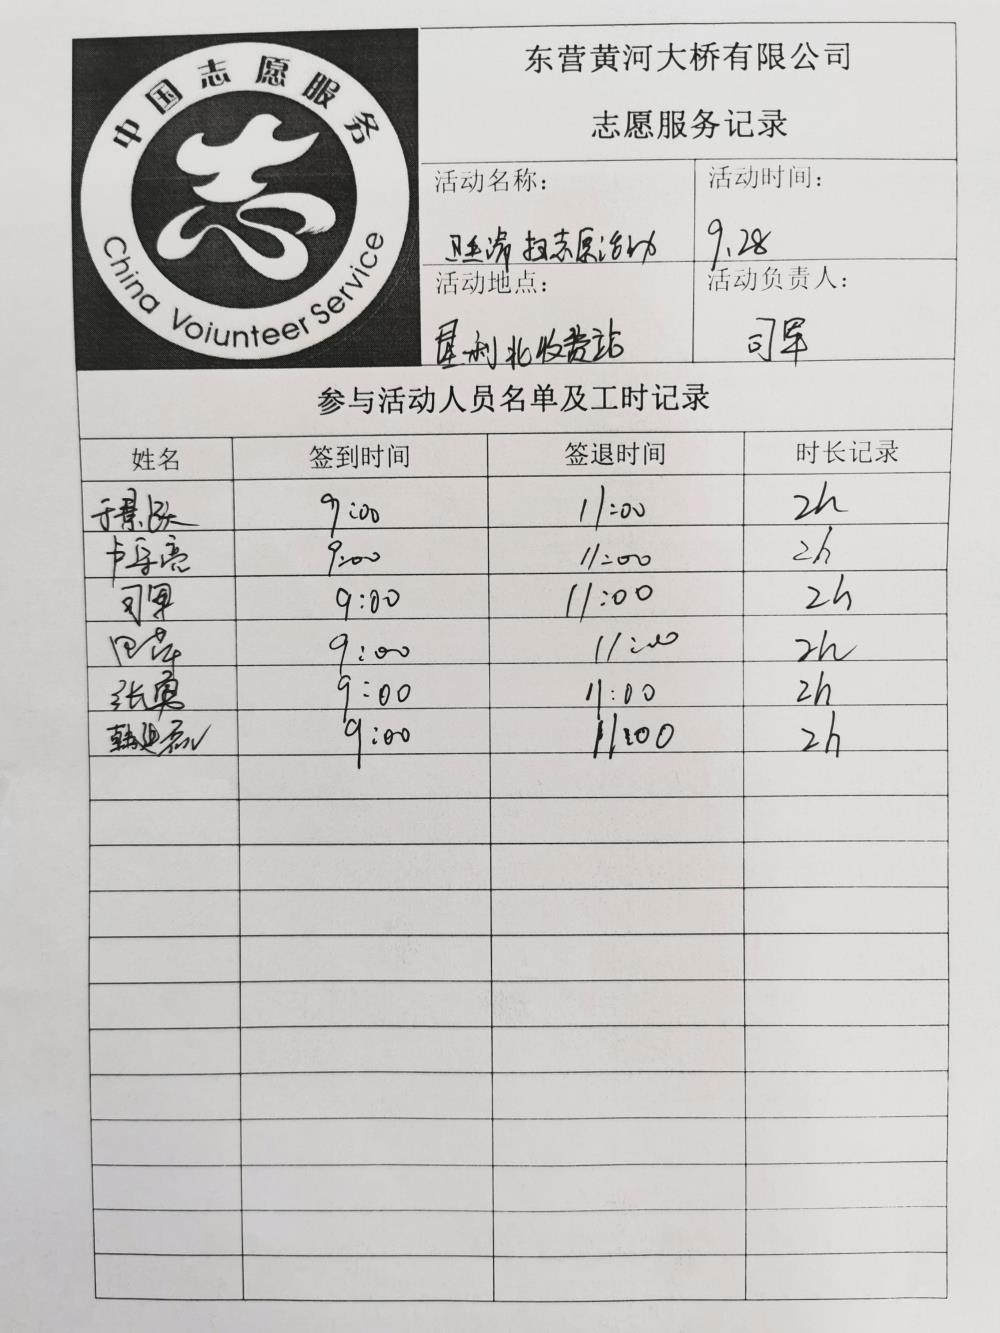 中国志愿服务
China Voiunteer Service
东营黄河大桥有限公司
志愿服务记录
活动名称：
卫生清扫志愿活动
活动时间：
9.28
活动地点：
垦利北收费站
活动负责人：
司军
参与活动人员名单及工时记录
姓名 签到时间 签退时间 时长记录
9:00 11:00 2h
9:00 11:00 2h
司军 9:00 11:00 2h
9:00 11:00 2h
张勇 9:00 11:00 2h
9:00 11:00 2h